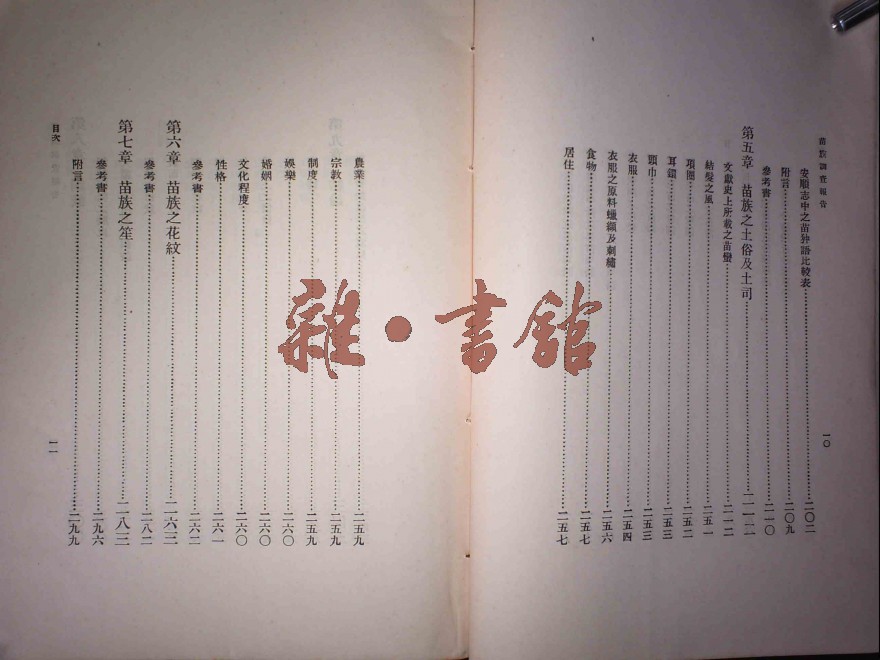 苗族調査報告
安順志中之苗種語比較表 二〇二
附言 二〇九
參考書 二一〇
第五章 苗族之土俗及土司 二一二
文獻史上所載之苗蠻 二一二
結髮之風 二五一
項圈 二五二
耳鐶 二五三
頭巾 二五三
衣服 二五四
衣服之原料蠟纈及刺繡 二五六
食物 二五七
居住 二五七
一〇
農業 二五九
宗教 二五九
制度 二五九
娛樂 二六〇
婚姻 二六〇
文化程度 二六〇
性格 二六一
參考書 二六二
第六章 苗族之花紋 二六三
參考書 二八二
第七章 苗族之笙 二八三
參考書 二九六
附言 二九九
目次
一一
雜·書館